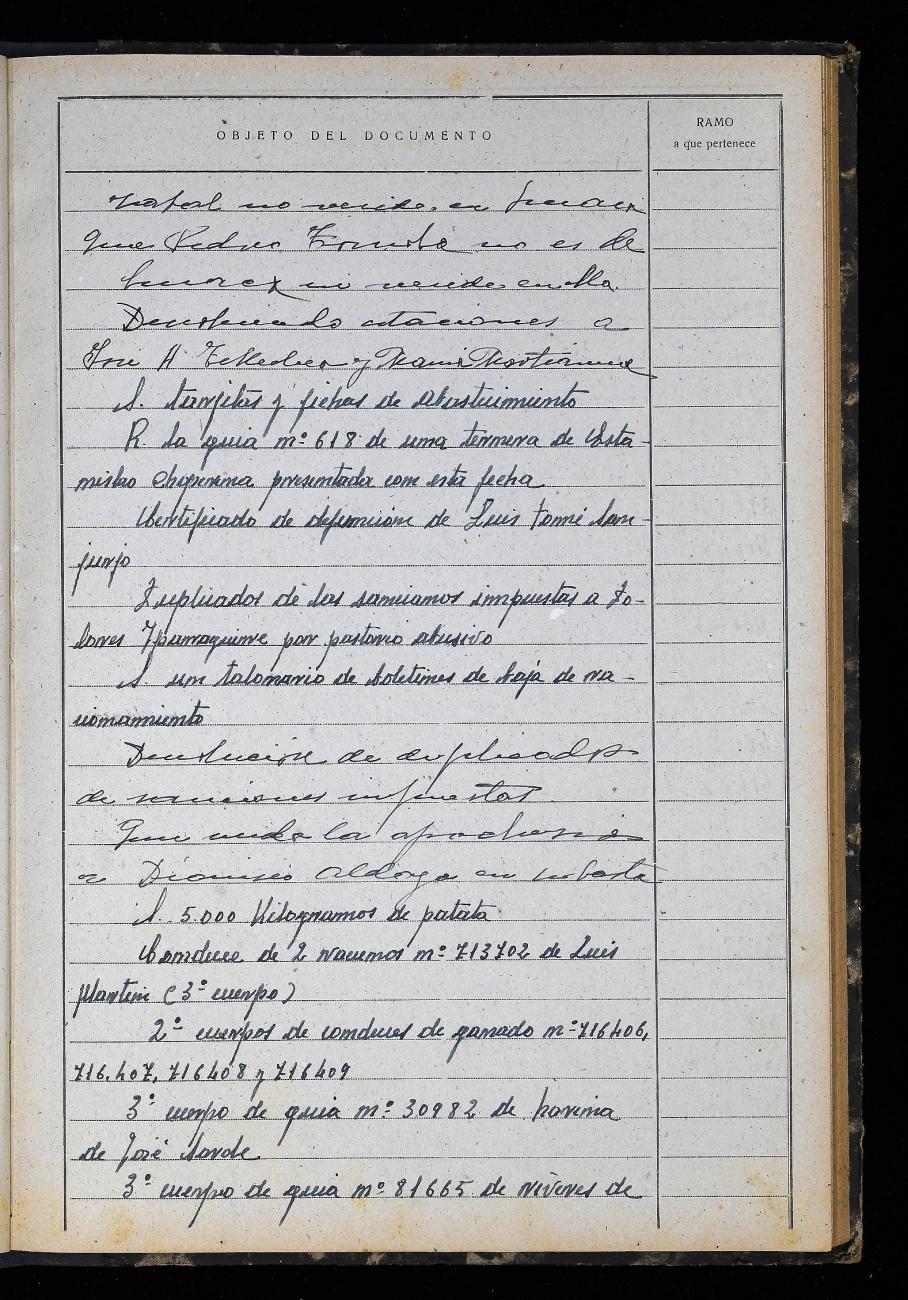 OBJETO DEL DOCUMENTO
RAMO
a que pertenece
no reside en
Que Pedro no es de
ni reside en ella.
Devolviendo citaciones a
José H y Maria
S. tarjetas y fichas de Abastecimiento
R. la guia nº 618 de una ternera de Esta-
nislao presentada con esta fecha
Certificado de defunción de Luis Tomé San-
jurjo
Duplicados de las sanciones impuestas a Do-
lores Yparraguirre por pastoreo abusivo
S. un talonario de boletines de baja de ra-
cionamiento
Devolución de duplicados
de sanciones impuestas.
Que
a Dionisio en subasta
S. 5.000 Kilogramos de patata
Conduce de 2 vacunos nº 713702 de Luis
Martin (3º cuerpo)
2º cuerpos de conduces de ganado nº 716406,
716.407, 716408 y 716409
3º cuerpo de guia nº 30982 de harina
de José
3º cuerpo de guia nº 81665 de víveres de